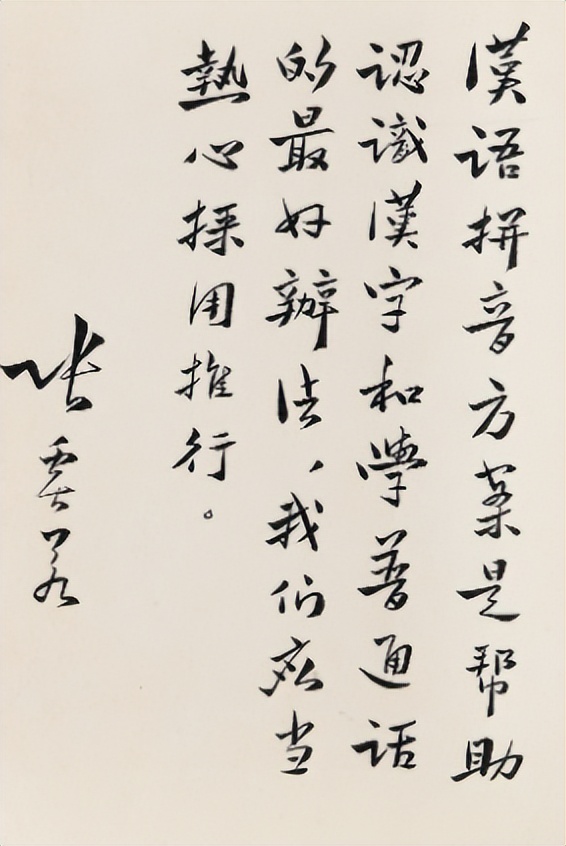 漢语拼音方案是帮助
認識漢字和學普通话
的最好辦法，我们应当
熱心採用推行。
张奚若